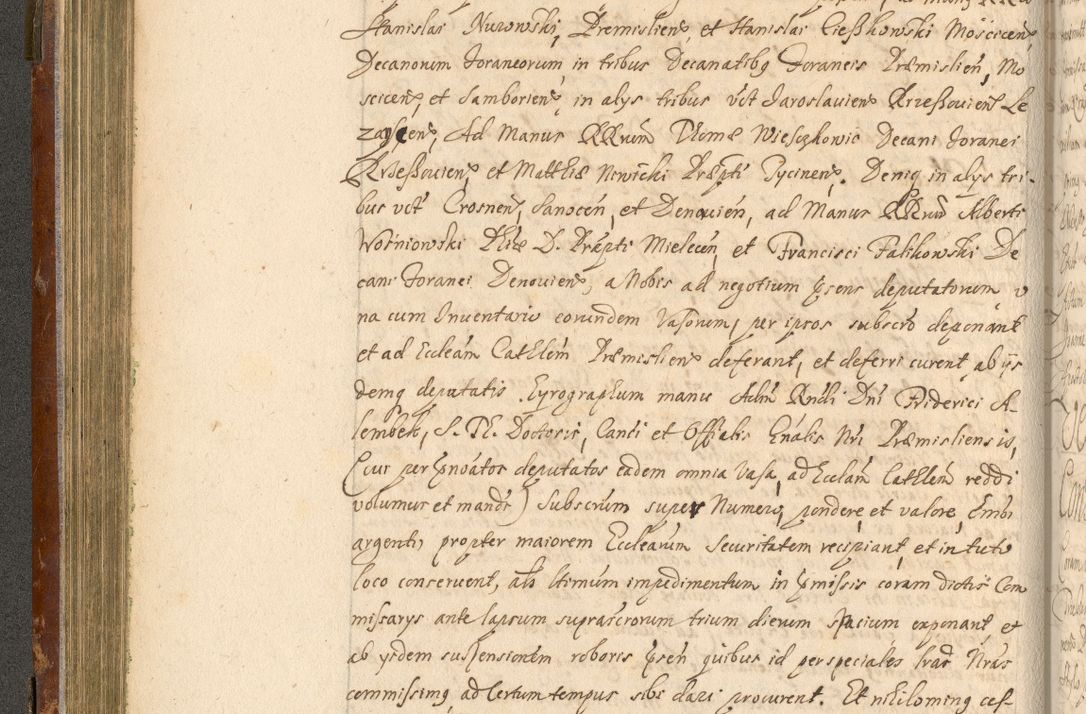 Stanislai Nurowski, Præmisliens, et Stanislai Cießkowski Moscicens,
Decanorum foraneorum in tribus Decanatibg foraneis Præmislien, Mo
scicens, et Samboriens, in alys tribus vct Jaroslauiens Rrzeßouiens Le
zayscens, Ad Manus RRrum Thomæ Wieszkowic Decani foranei
Rrzeßouiens, et Matthiæ Nowicki Præpti Tycinens. Deniq in alys tri-
bus vct Crosnens, Sanocen, et Denouien, ad Manus RRrum Alberti
Wosniowski Phiæ D. Præpti Mielecen, et Francisci Falikowski De
cani foranei Denouiens, a Nobis ad negotium psens deputatorum v
na cum Inuentario eorundem Vasorum, per ipsos subscro deponant
et ad Eccleam Cathlem Præmisliens deferant, et deferri curent, ab ijs
demq deputatis Cyrographum manu Adm Rndi Dni Friderici A-
lembek, S. Th. Doctoris, Canci et Offialis Gnalis Nri Præmisliensis,
(cui per pnoatos deputatos eadem omnia Vasa, ad Ecclam Cathlem reddi
volumus et mands) Subscrum super Numero, pondere, et valore
argenti, propter maiorem Ecclearum securitatem recipiant, et in tuto
loco conseruent, als ltimum impedimentum in pmissis coram dictis Com
missarys ante lapsum suprascrorum trium dierum spacium exponant et
ab ysdem suspensionem roboris psen quibus id per speciales lras Nras
commisimq, ad certum tempus sibi dari procurent. Et nihilominq ces-